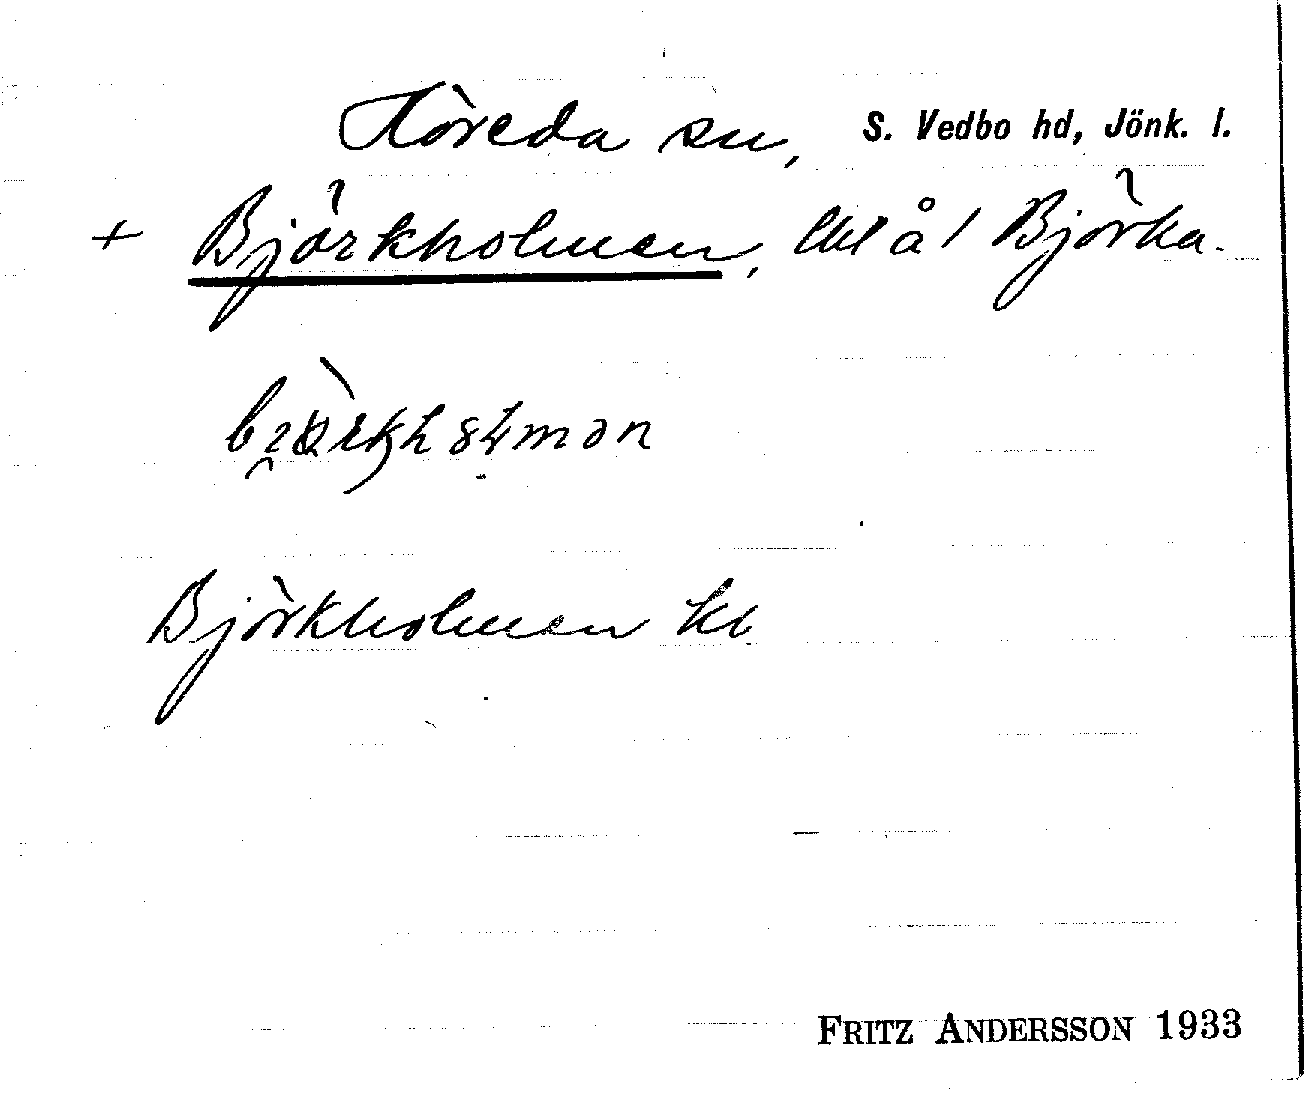 Höreda sn, S. Vedbo hd, Jönk. l.
+ Björkholmen, lht å 1 Björka.
Björkholmen kl
FRITZ ANDERSSON 1933